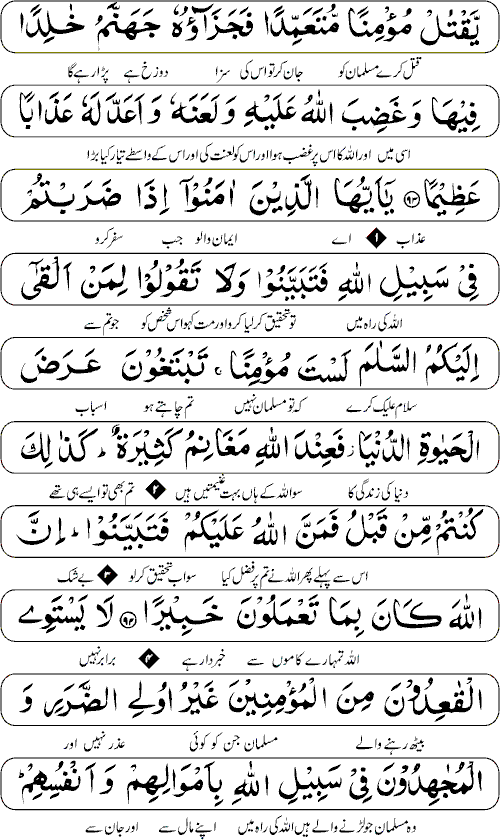 يَّقْتُلْ مُؤْمِنًا مُّتَعَمِّدًا فَجَزَآؤُهٗ جَهَنَّمُ خٰلِدًا
قتل کرے مسلمان کو جان کر تو اس کی سزا دوزخ ہے پڑا رہے گا
فِيْهَا وَغَضِبَ اللّٰهُ عَلَيْهِ وَلَعَنَهٗ وَاَعَدَّ لَهٗ عَذَابًا
اسی میں اور اللہ کا اس پر غضب ہوا اور اس کو لعنت کی اور اس کے واسطے تیار کیا بڑا
عَظِيْمًا ﴿۹۳﴾ يٰۤاَيُّهَا الَّذِيْنَ اٰمَنُوْۤا اِذَا ضَرَبْتُمْ
عذاب ۱ اے ایمان والو جب سفر کرو
فِيْ سَبِيْلِ اللّٰهِ فَتَبَيَّنُوْا وَلَا تَقُوْلُوْا لِمَنْ اَلْقٰۤى
اللہ کی راہ میں تو تحقیق کر لیا کرو اور مت کہو اس شخص کو جو تم سے
اِلَيْكُمُ السَّلٰمَ لَسْتَ مُؤْمِنًا ۚ تَبْتَغُوْنَ عَرَضَ
سلام علیک کرے کہ تو مسلمان نہیں تم چاہتے ہو اسباب
الْحَيٰوةِ الدُّنْيَا ز فَعِنْدَ اللّٰهِ مَغَانِمُ كَثِيْرَةٌ ؕ كَذٰلِكَ
دنیا کی زندگی کا سو اللہ کے ہاں بہت غنیمتیں ہیں ۲ تم بھی تو ایسے ہی تھے
كُنْتُمْ مِّنْ قَبْلُ فَمَنَّ اللّٰهُ عَلَيْكُمْ فَتَبَيَّنُوْا ؕ اِنَّ
اس سے پہلے پھر اللہ نے تم پر فضل کیا سو اب تحقیق کر لو ۳ بے شک
اللّٰهَ كَانَ بِمَا تَعْمَلُوْنَ خَبِيْرًا ﴿۹۴﴾ لَا يَسْتَوِي
اللہ تمہارے کاموں سے خبردار ہے ۴ برابر نہیں
الْقٰعِدُوْنَ مِنَ الْمُؤْمِنِيْنَ غَيْرُ اُولِي الضَّرَرِ وَ
بیٹھ رہنے والے مسلمان جن کو کوئی عذر نہیں اور
الْمُجٰهِدُوْنَ فِيْ سَبِيْلِ اللّٰهِ بِاَمْوَالِهِمْ وَاَنْفُسِهِمْ ؕ
وہ مسلمان جو لڑنے والے ہیں اللہ کی راہ میں اپنے مال سے اور جان سے